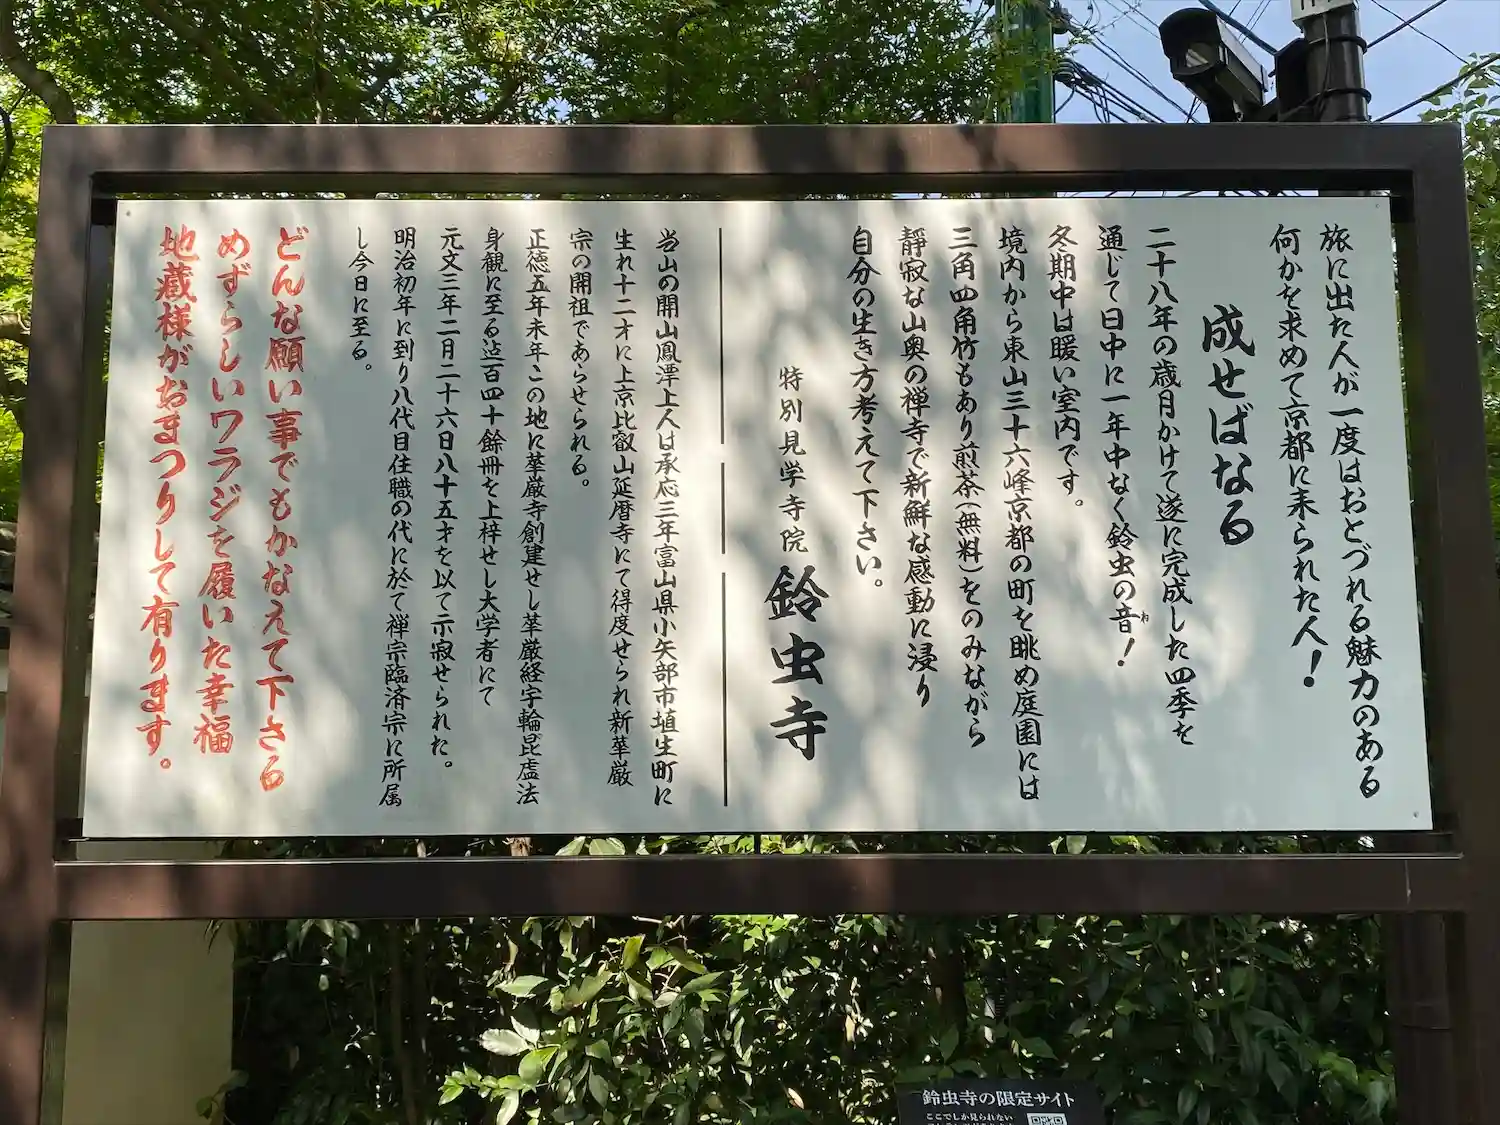 旅に出た人が一度はおとづれる魅力のある
何かを求めて京都に来られた人!
成せばなる
二十八年の歳月かけて遂に完成した四季を
通じて日中に一年中なく鈴虫の音!
ね
冬期中は暖い室内です。
境内から東山三十六峰京都の町を眺め庭園には
三角四角竹もあり煎茶(無料)をのみながら
靜寂な山奥の禅寺で新鮮な感動に浸り
自分の生き方考えて下さい。
特別見学寺院 鈴虫寺
当山の開山鳳潭上人は承応三年富山県小矢部市埴生町に
生れ十二才に上京比叡山延暦寺にて得度せられ新華厳
宗の開祖であらせられる。
正徳五年未年この地に華厳寺創建せし華厳経宇輪昆虚法
身観に至る迠百四十餘冊を上梓せし大学者にて
元文三年二月二十六日八十五才を以て示寂せられた。
明治初年に到り八代目住職の代に於て禅宗臨済宗に所属
し今日に至る。
どんな願い事でもかなえて下さる
めずらしいワラジを履いた幸福
地蔵様がおまつりして有ります。
鈴虫寺の限定サイト
ここでしか見られない